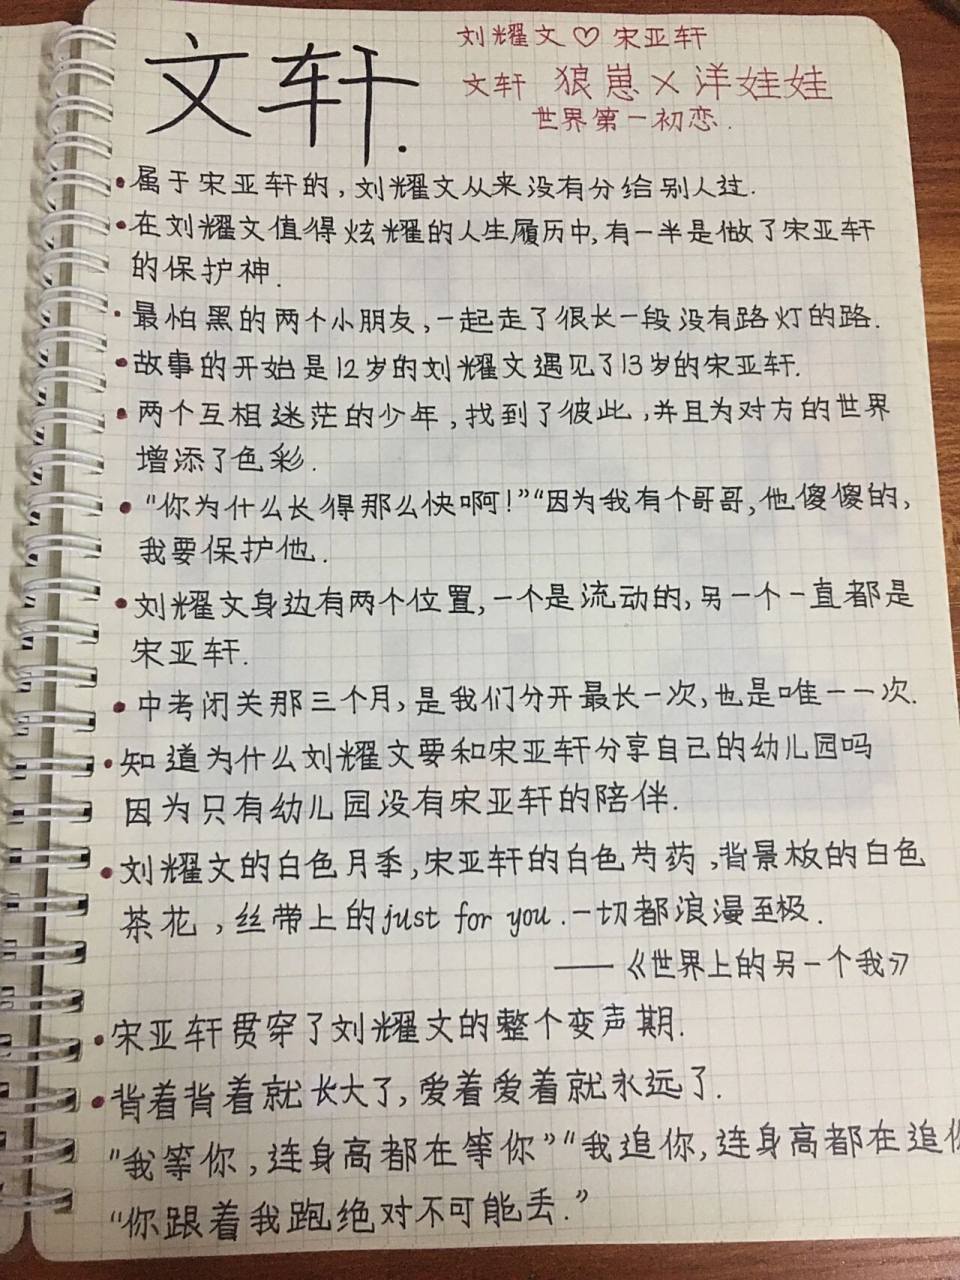 文轩.
刘耀文♡宋亚轩
文轩 狼崽×洋娃娃
世界第一初恋.
•属于宋亚轩的,刘耀文从来没有分给别人过.
•在刘耀文值得炫耀的人生履历中,有一半是做了宋亚轩
的保护神.
•最怕黑的两个小朋友,一起走了很长一段没有路灯的路.
•故事的开始是12岁的刘耀文遇见了13岁的宋亚轩.
•两个互相迷茫的少年,找到了彼此,并且为对方的世界
增添了色彩.
•“你为什么长得那么快啊!”“因为我有个哥哥,他傻傻的,
我要保护他.
•刘耀文身边有两个位置,一个是流动的,另一个一直都是
宋亚轩.
•中考闭关那三个月,是我们分开最长一次,也是唯一一次.
•知道为什么刘耀文要和宋亚轩分享自己的幼儿园吗
因为只有幼儿园没有宋亚轩的陪伴.
•刘耀文的白色月季,宋亚轩的白色芍药,背景板的白色
茶花,丝带上的just for you.一切都浪漫至极.
——《世界上的另一个我》
•宋亚轩贯穿了刘耀文的整个变声期.
•背着背着就长大了,爱着爱着就永远了.
“我等你,连身高都在等你”“我追你,连身高都在追你
“你跟着我跑绝对不可能丢.”